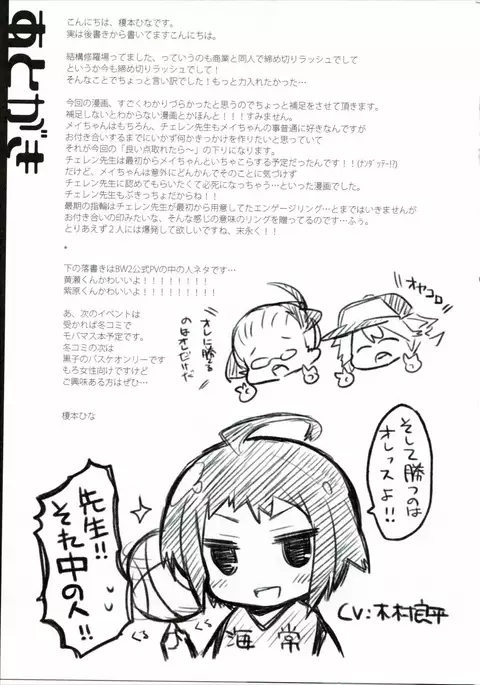 あとがき
こんにちは、榎本ひなです。
実は後書きから書いてますこんにちは。
結構修羅場ってました、っていうのも商業と同人で締め切りラッシュでして
というか今も締め切りラッシュでして!
そんなことでちょっと言い訳でした!もっと力入れたかった…
今回の漫画、すごくわかりづらかったと思うのでちょっと補足をさせて頂きます。
補足しないとわからない漫画とかほんと!!!すみません。
メイちゃんはもちろん、チェレン先生もメイちゃんの事普通に好きなんですが
お付き合いするまでにいかず何かきっかけを作りたいと思っていて
それが今回の「良い点取れたら~」の下りになります。
チェレン先生は最初からメイちゃんといちゃこらする予定だったんです!!(ナンダッテー!?)
だけど、メイちゃんは意外にどんかんでそのことに気づけず
チェレン先生に認めてもらいたくて必死になっちゃう…といった漫画でした。
チェレン先生もぶきっちょだからね!!
最期の指輪はチェレン先生が最初から用意してたエンゲージリング…とまではいきませんが
お付き合いの印みたいな、そんな感じの意味のリングを贈ってるのです…ふぅ。
とりあえず2人には爆発して欲しいですね、末永く!!
*
下の落書きはBW2公式PVの中の人ネタです…
黄瀬くんかわいいよ!!!!!!!!
紫原くんかわいいよ!!!!!!!!!
あ、次のイベントは
受かれば冬コミで
モバマス本予定です。
冬コミの次は
黒子のバスケオンリーです
もろ女性向けですけど
ご興味ある方はぜひ…
榎本ひな
オヤコロ
オレに勝てる
のはオレだけだ
そして勝つのは
オレッスよ!!
先生!!
それ中の人!!
くる
くる
海常
CV:木村良平